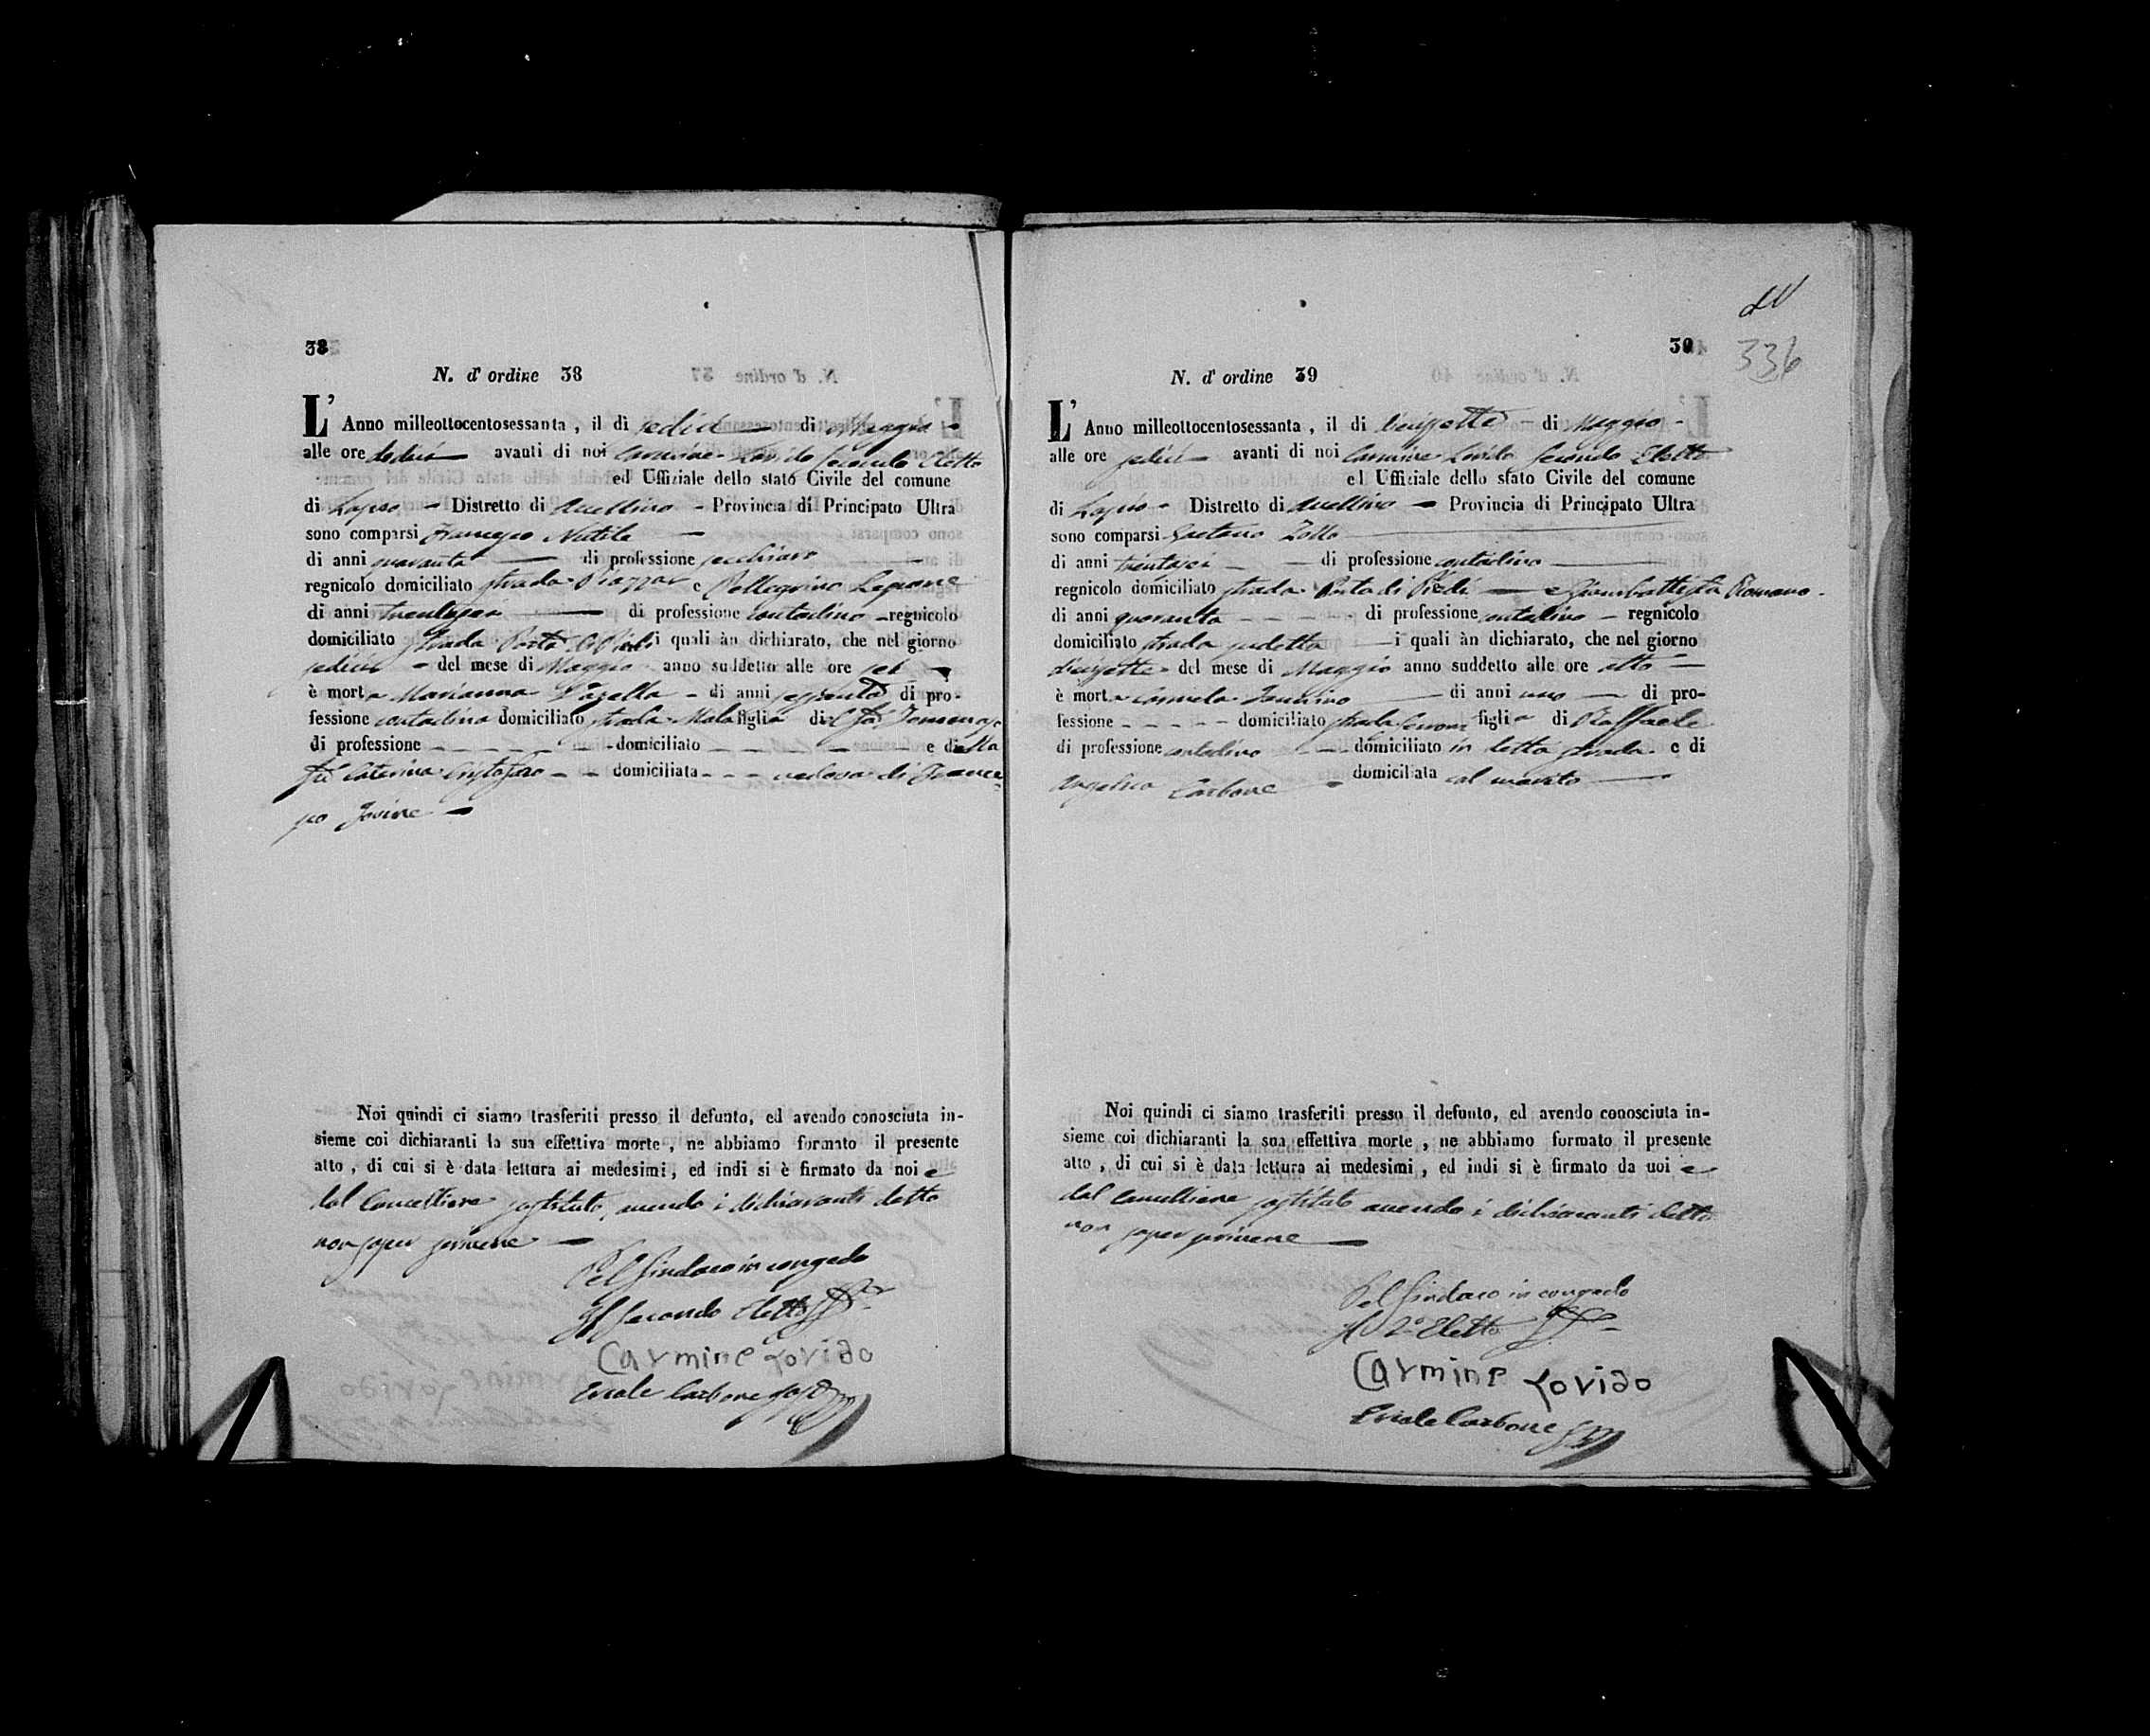 38
N. d' ordine 38
L' Anno milleottocentosessanta, il dì sedici di Maggio
alle ore dodici avanti di noi Carmine Lovido Secondo Eletto
ed Uffiziale dello stato Civile del comune
di Lapio Distretto di Avellino Provincia di Principato Ultra
sono comparsi Francesco
di anni quaranta di professione
regnicolo domiciliato strada Piazza e Pellegrino
di anni di professione contadino regnicolo
domiciliato strada Porta di Piedi i quali àn dichiarato, che nel giorno
sedici del mese di Maggio anno suddetto alle ore sei
è morta Marianna di anni sessanta di pro-
fessione contadina domiciliato strada figlia del fu Tommaso
di professione domiciliato e della
fu Caterina Cristofaro domiciliata vedova di France
sco Iovine
Noi quindi ci siamo trasferiti presso il defunto, ed avendo conosciuta in-
sieme coi dichiaranti la sua effettiva morte, ne abbiamo formato il presente
atto, di cui si è data lettura ai medesimi, ed indi si è firmato da noi e
dal Cancelliere sostituto, avendo i dichiaranti detto
non saper scrivere
Pel Sindaco in congedo
Il Secondo Eletto
Carmine Lovido
Carbone
LV
39
336
N. d' ordine 39
L' Anno milleottocentosessanta, il di diecisette di Maggio
alle ore sedici avanti di noi Carmine Lovido Secondo Eletto
ed Uffiziale dello stato Civile del comune
di Lapio Distretto di Avellino Provincia di Principato Ultra
sono comparsi Gaetano Zollo
di anni trentasei di professione contadino
regnicolo domiciliato strada Porta di Piedi e Giambattista Romano
di anni quaranta di professione contadino regnicolo
domiciliato strada sudetta i quali àn dichiarato, che nel giorno
diecisette del mese di Maggio anno suddetto alle ore otto
è morta Carmela di anni uno di pro-
fessione domiciliato strada figlia di Raffaele
di professione contadino domiciliato in detta strada e di
Angelica Carbone domiciliata col marito
Noi quindi ci siamo trasferiti presso il defunto, ed avendo conosciuta in-
sieme coi dichiaranti la sua effettiva morte, ne abbiamo formato il presente
atto, di cui si è data lettura ai medesimi, ed indi si è firmato da noi e
dal Cancelliere sostituto avendo i dichiaranti detto
non saper scrivere
Pel Sindaco in congedo
Il 2º Eletto
Carmine Lovido
Carbone